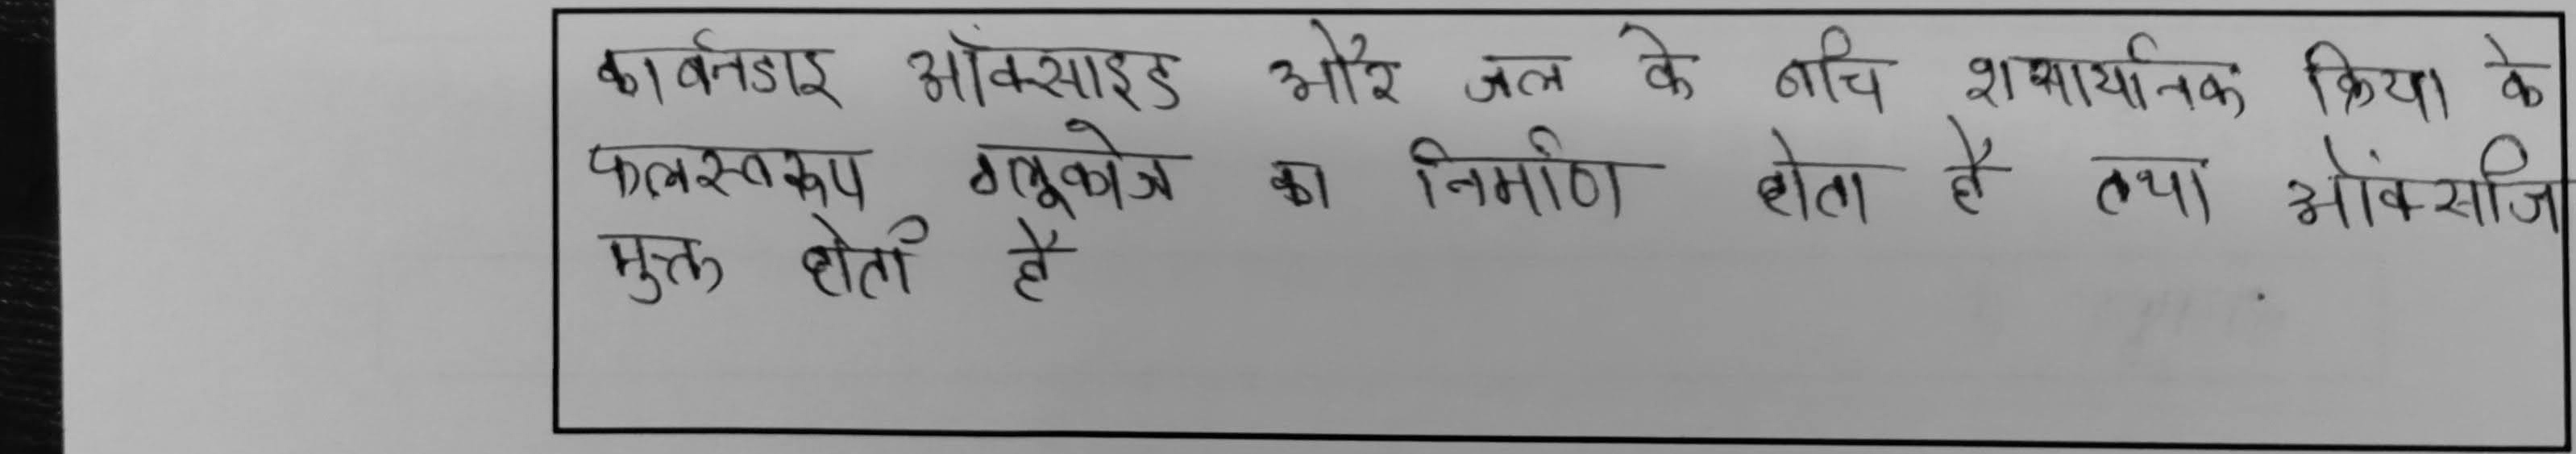 कार्बनडाइ ऑक्साइड और जल के बीच रासायनिक क्रिया के
फलस्वरूप ग्लूकोज का निर्माण होता है तथा ऑक्सीज
मुक्त होती है